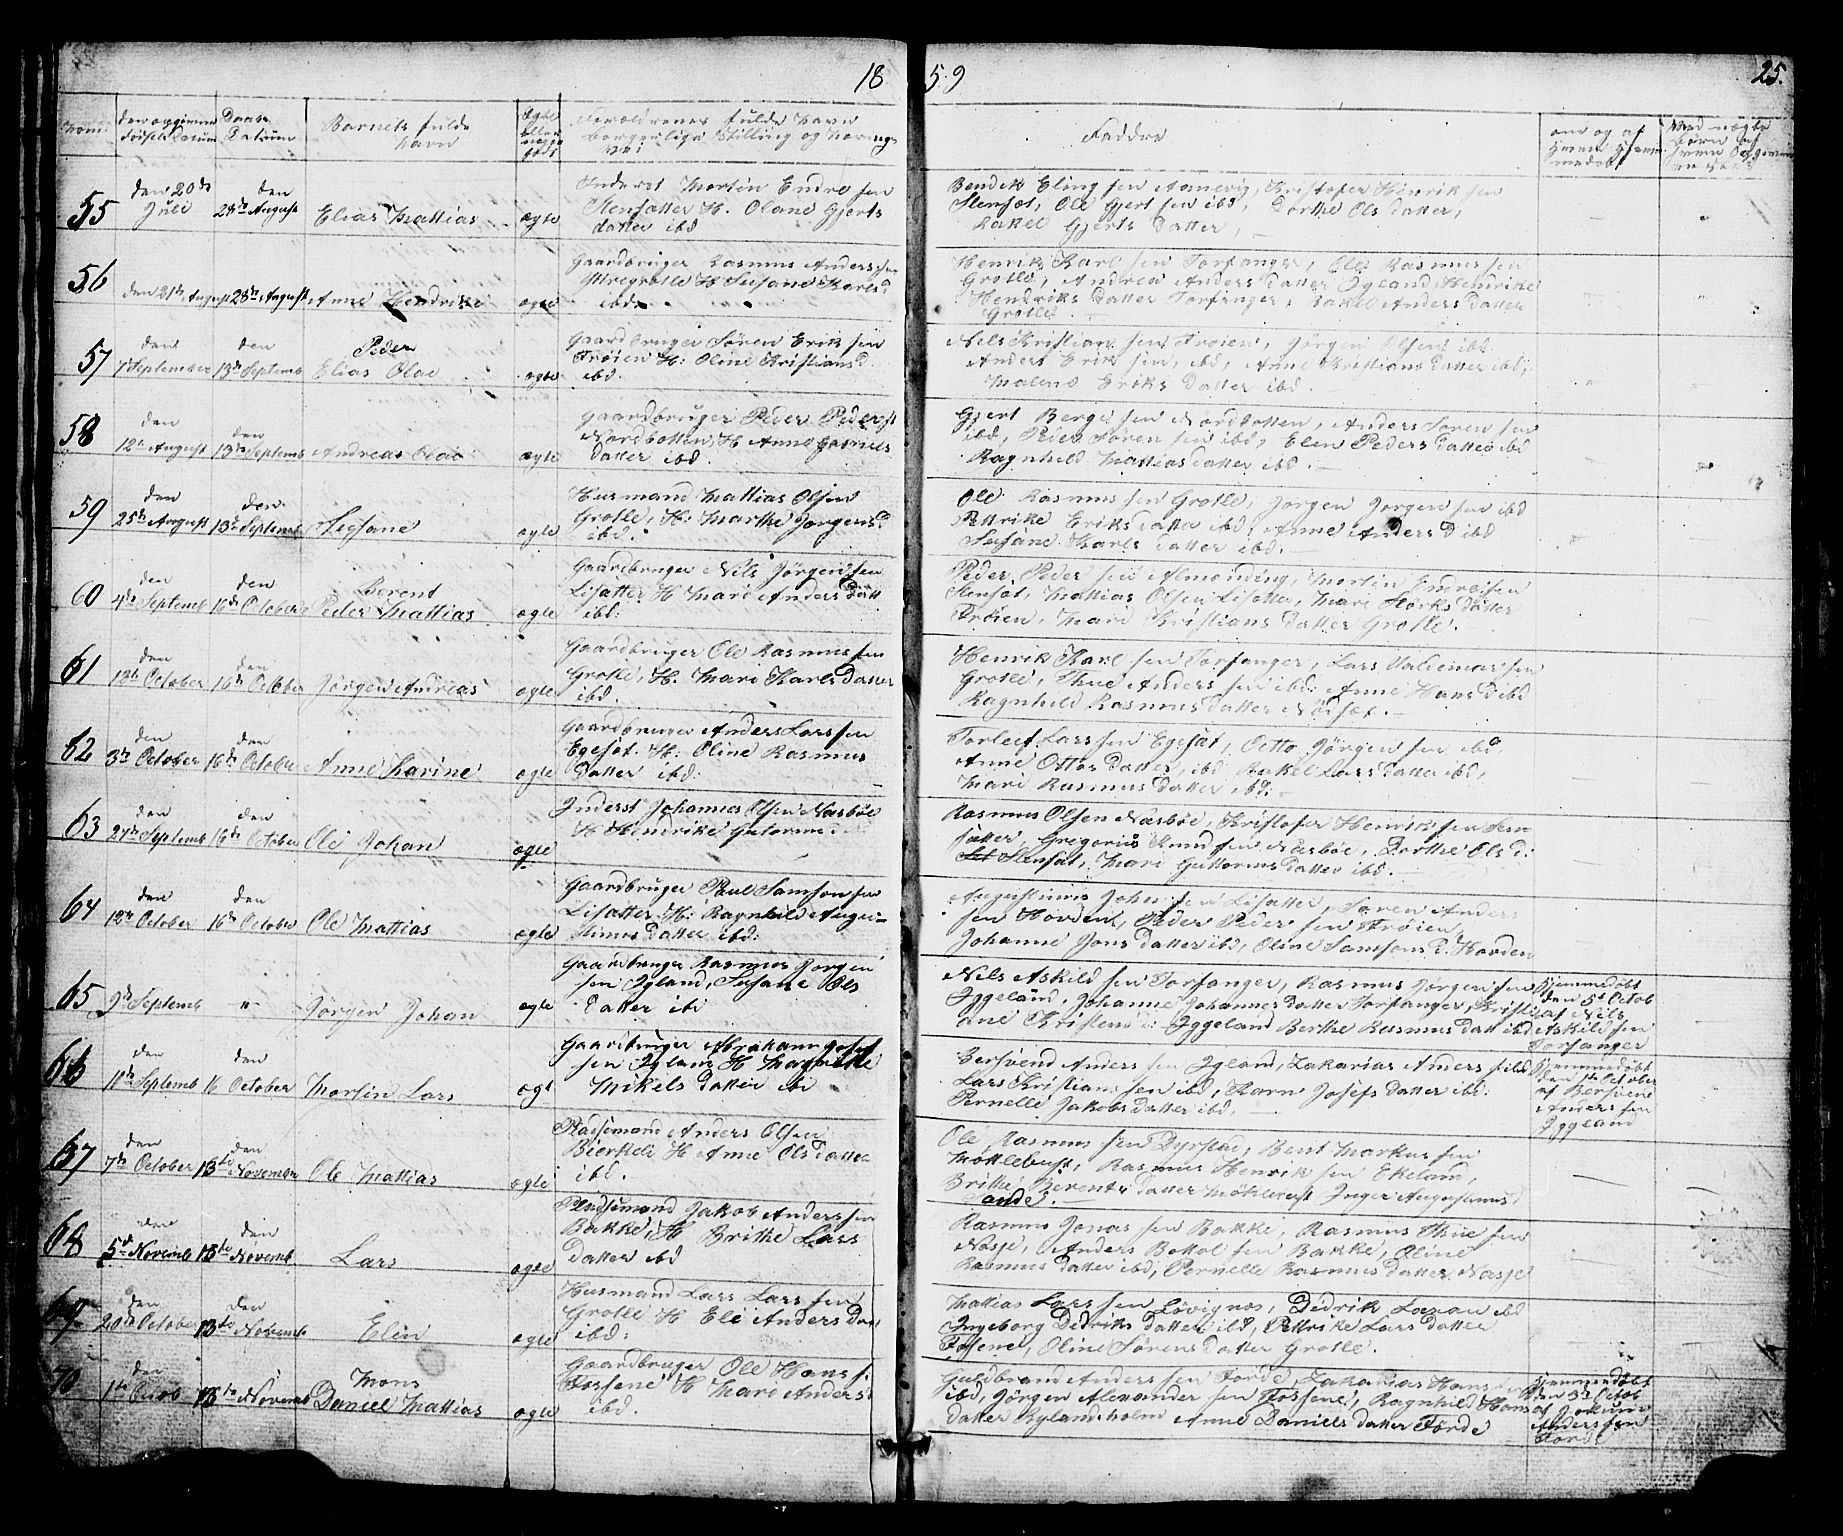 18
59
25.
Barnets fulde
Navn
Daabs
Datum
Forældrenes fulde Navn
borgerlige Stilling og Nærings
Faddre
55
den 20de
Juli
den
28de August
Elias Mattias
ægte
Inderst Mortin Endre sen
Stensætter H. Oline Gjerts
datter ibd
Bendik Eling sen Annevig, Kristofer Henrik sen
Stensæt, Ole Gjert sen ibd, Dorthe Ols datter,
Rakel Gjerts datter,
56
den 21de August
28de August
Anne Hendrike
ægte
Gaardbruger Rasmus Anders sen
Yttregrotle H Susane Karls d
ibd.
Henrik Karl sen Torfanger, Ole Rasmus sen
Grotle, Andrea Anders datter Igland, Henrike
Hendriks datter Torfanger, Rakel Anders datter
Grotle.
57
den
7 September
den
13de Septemb
Peder
Elias Olae
ægte
Gaardbruger Søren Erik sen
Frøien H: Oline Kristians d
ibd.
Nels Kristian sen Frøien, Jørgen Olsen ibd.
Anders Erik sen, ibd, Anne Kristians datter ibd,
Malene Eriks datter ibd.
58
den
12te August
den
13de Septemb
Andreas Olae
ægte
Gaardbruger Peder Peders
Nordbotten, H Anne Gabriels
datter ibd.
Gjert Berge sen Nordbotten, Anders Søren sen
ibd, Peder Søren sen ibd, Elen Peders datter ibd
Ragnhild Mattias datter ibd.
59
den
25de August
den
13de Septemb
Susane
ægte
Husmand Mattias Olsen
Grotle, H: Marthe Jørgens d
ibd.
Ole Rasmus sen Grotle, Jørgen Jørgen sen ibd
Petrike Eriks datter ibd, Anne Anders d ibd
Susane Karls datter ibd.
60
den
4de Septemb
den
16de October
Berent
Peder Mattias
ægte
Gaardbruger Nils Jørgen sen
Lisætter H Mari Anders datt
ibd:
Peder Peder sen Almending, Mortin Endre sen
Stensæt, Mattias Olsen Lisætter, Mari Størks datter
Frøien, Mari Kristians datter Grotle.
61
den
12te October
den
16de October
Jørgen Andreas
ægte
Gaardbruger Ole Rasmus sen
Grotle, H. Mari Karls datter
ibd.
Henrik Karl sen Torfanger, Lars Valdemar sen
Grotle, Thue Anders sen ibd: Anne Hans d ibd
Ragnhild Rasmus datter Nødset.
62
den
3de October
den
16de October
Anne Karine
ægte
Gaardbruger Anders Lars sen
Egesæt. H: Oline Rasmus
datter ibd:
Torleif Lars sen Egesæt, Otto Jørgen sen ibd,
Anne Ottos datter, ibd Rakel Lars datter ibd,
Mari Rasmus datter ibd.
63
den
27de Septemb
den
16de October
Ole Johan
ægte
Inderst Johannes Olsen Næsbøe
H Hendrike Gutorms d
Rasmus Olsen Næsbøe, Kristofer Henrik sen Sten
sætter, Gregorius Knud sen Næsbøe, Dorthe Ols d:
Stensæt, Mari Guttorms datter ibd.
64
den
12te October
den
16de October
Ole Mattias
ægte
Gaardbruger Paul Samson sen
Lisætter H: Ragnhild Augu-
stinus datter ibd:
Augustinus John sen Lisætter, Søren Anders
sen Hovden, Peder Peder sen Frøien,
Johanne Jons datter ibd, Oline Samsons d: Hovden
65
9de Septemb
Jørgen Johan
ægte
Gaardbruger Rasmus Jørgen
sen Igland, Susane Ols
datter ibi
Nils Askild sen Torfanger, Rasmus Jørgen sen
Iggeland, Johanne Johannes datter Torfanger, Kristi
ane Kristens d: Iggeland Berthe Rasmus datt ibd
Hjemmedøbt
den 5te Octob
af Nils
Askild sen
Torfanger
66
den
11te Septemb
den
16 October
Mortin Lars
ægt
Gaardbruger Abraham Josef
sen Igland H Magnille
Mikels datter ibi
Bersvend Anders sen Igland, Zakarias Anders s ibd
Lars Kristian sen ibd, Karn Josefs datter ibd:
Pernelle Jakobs datter ibd,
Hjemmedøbt
den 1te October
af Bersvend
Anders sen
Iggeland
67
den
7de October
den
13de November
Ole Mattias
ægte
Pladsemand Anders Olsen
Bierkeli H Anne Ols datter
ibd.
Ole Rasmus sen Dyrstad, Bent Markus sen
Møklebust, Rasmus Henrik sen Ekeland,
Brithe Berents datter Møklebust Inger Augustinus d
Sande.
68
den
5te Novemb
den
13de Novemb
Lars
ægte
Pladsemand Jakob Anders sen
Bakke, H Brithe Lars
datter ibd
Rasmus Jonas sen Bakke, Rasmus Thue sen
Nøsje, Anders Bottol sen Bakke, Oline
Rasmus datter ibd, Pernelle Rasmus datter Nøsje
69
den
20de October
den
13de Novemb
Elin
ægte
Husmand Lars Lars sen
Grotle H Eli Anders dat
ibd:
Mattias Lars sen Løvignæs, Didrik Lasan ibd
Ingeborg Didriks datter ibd, Petrike Lars datter
Fosene, Oline Sørens datter Grotle.
70
den
1te Octob
13de Novemb
Mons
Daniel Mattias
ægte
Gaardbruger Ole Hans s:
Fossene H Mari Anders
ibd.
Guldbrand Anders sen Førde, Zakarias Hans sen
ibd, Jørgen Alexander sen Fossene, Ragnhild Hans
datter Rylandsholm Anne Daniels datter Førde
Hjemmedøbt
den 3de Octob
af Jokum
Anders sen
Førde